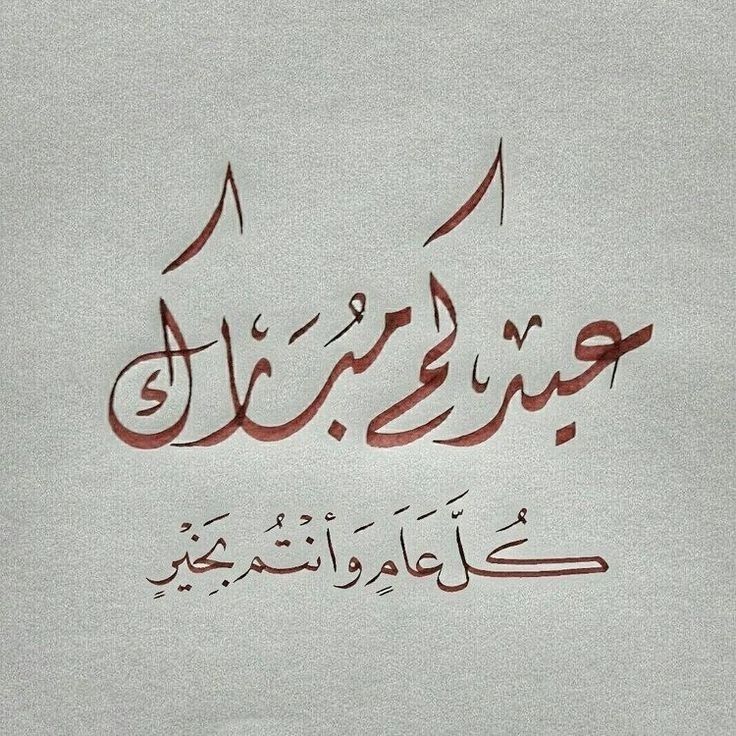 عيدكم مُبَارك
كُلَّ عَامٍ وَأَنْتُم بِخَيْرٍ